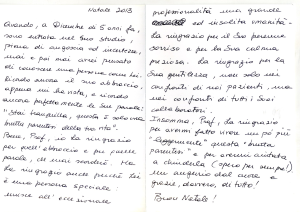 Natale 2013
Quando, a Dicembre di 5 anni fa,
sono entrata nel Suo studio,
piena di angoscia ed incertezze,
mai e poi mai avrei pensato
di conoscere una persona come Lei.
Ricordo ancora il suo abbraccio,
appena mi ha vista, e ricordo
ancora perfettamente le Sue parole:
"Stai tranquilla, questa è solo una
brutta parentesi della tua vita".
Bene, Prof., io La ringrazio
per quell'abbraccio e per quelle
parole, che mai scorderò. Ma
La ringrazio anche perché Lei
è una persona speciale:
unisce all'eccezionale
professionalità una grande
ed insolita umanità.
La ringrazio per il Suo perenne
sorriso e per la Sua calma
preziosa. La ringrazio per la
Sua gentilezza, non solo nei
confronti di noi pazienti, ma
nei confronti di tutti i Suoi
collaboratori.
Insomma, Prof., La ringrazio
per avermi fatto vivere un po' più
"leggermente" questa "brutta
parentesi" e per avermi aiutata
a chiuderla (spero per sempre!)
Un augurio dal cuore e
grazie, davvero, di tutto!
Buon Natale!